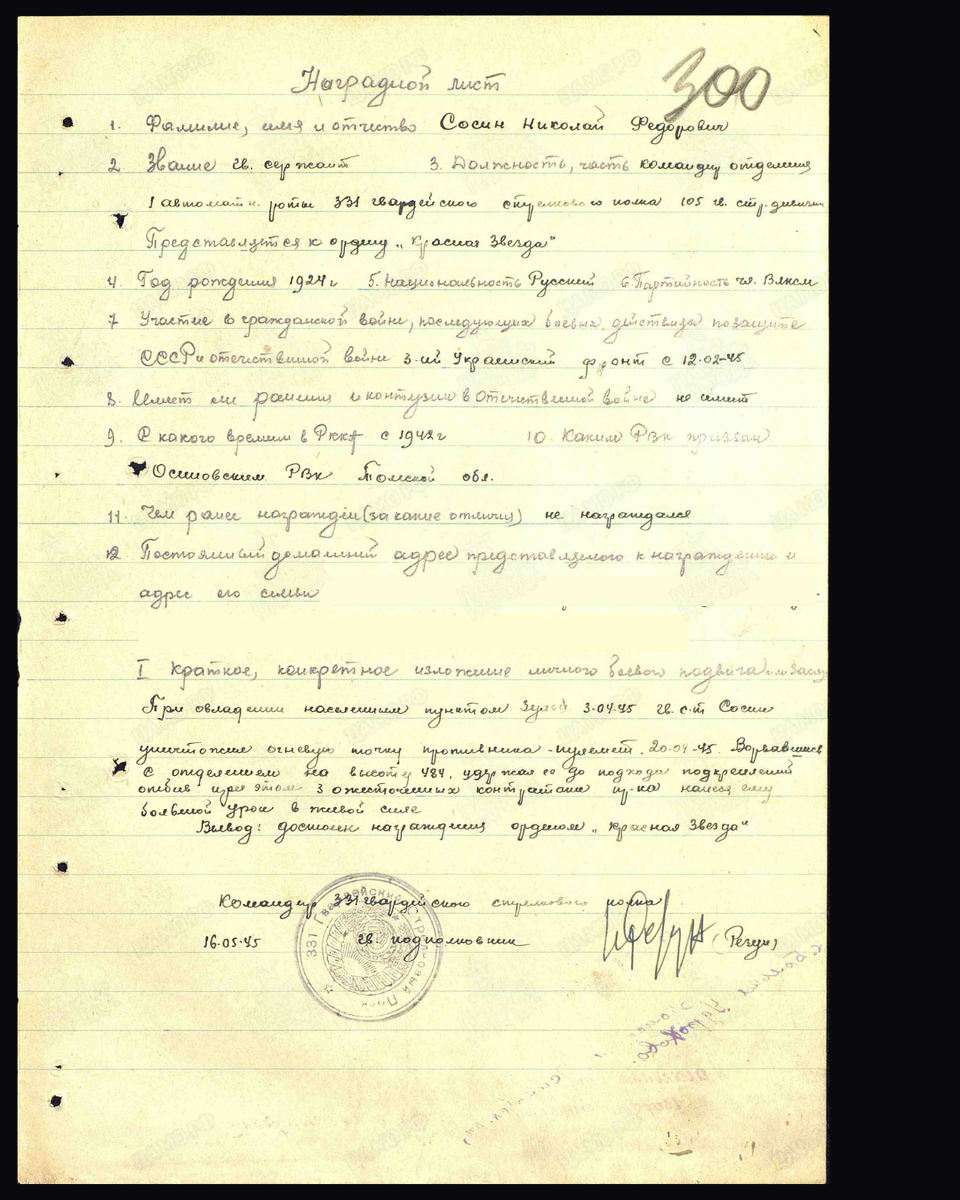 300
Наградной лист
1. Фамилие, имя и отчество Сосин Николай Федорович
2 Звание гв. сержант 3. Должность, часть командир отделения
1 автоматн. роты 331 гвардейского стрелкового полка 105 гв. стр. дивизии
Представляется к ордену „Красная Звезда"
4. Год рождения 1924 г 5. Национальность Русский 6. Партийность чл. Влксм
7 Участие в гражданской войне, последующих боевых действиях по защите
СССР и отечественной войне 3-ий Украинский фронт с 12.02-45
8. Имеет ли ранения и контузии в Отечественной войне не имеет
9. С какого времени в Ркка с 1942 г 10. Каким РВк призван
Осиновским РВк Томской обл.
11. Чем ранее награжден (за какие отличия) не награждался
12 Постоянный домашний адрес представляемого к награждению и
адрес его семьи
I Краткое, конкретное изложение личного боевого подвига или заслуг
При овладении населенным пунктом 3-04-45 гв. с-т Сосин
уничтожил огневую точку противника - пулемет. 20-04-45. Ворвавшись
с отделением на высоту 484, удержал ее до подхода подкреплений
отбив при этом 3 ожесточенных контратаки пр-ка нанеся ему
большой урон в живой силе
Вывод: достоин награждения орденом „Красная Звезда"
Командир 331 гвардейского стрелкового полка
16.05.45 гв. подполковник (Резун)
331 Гвардейский Стрелковый Полк